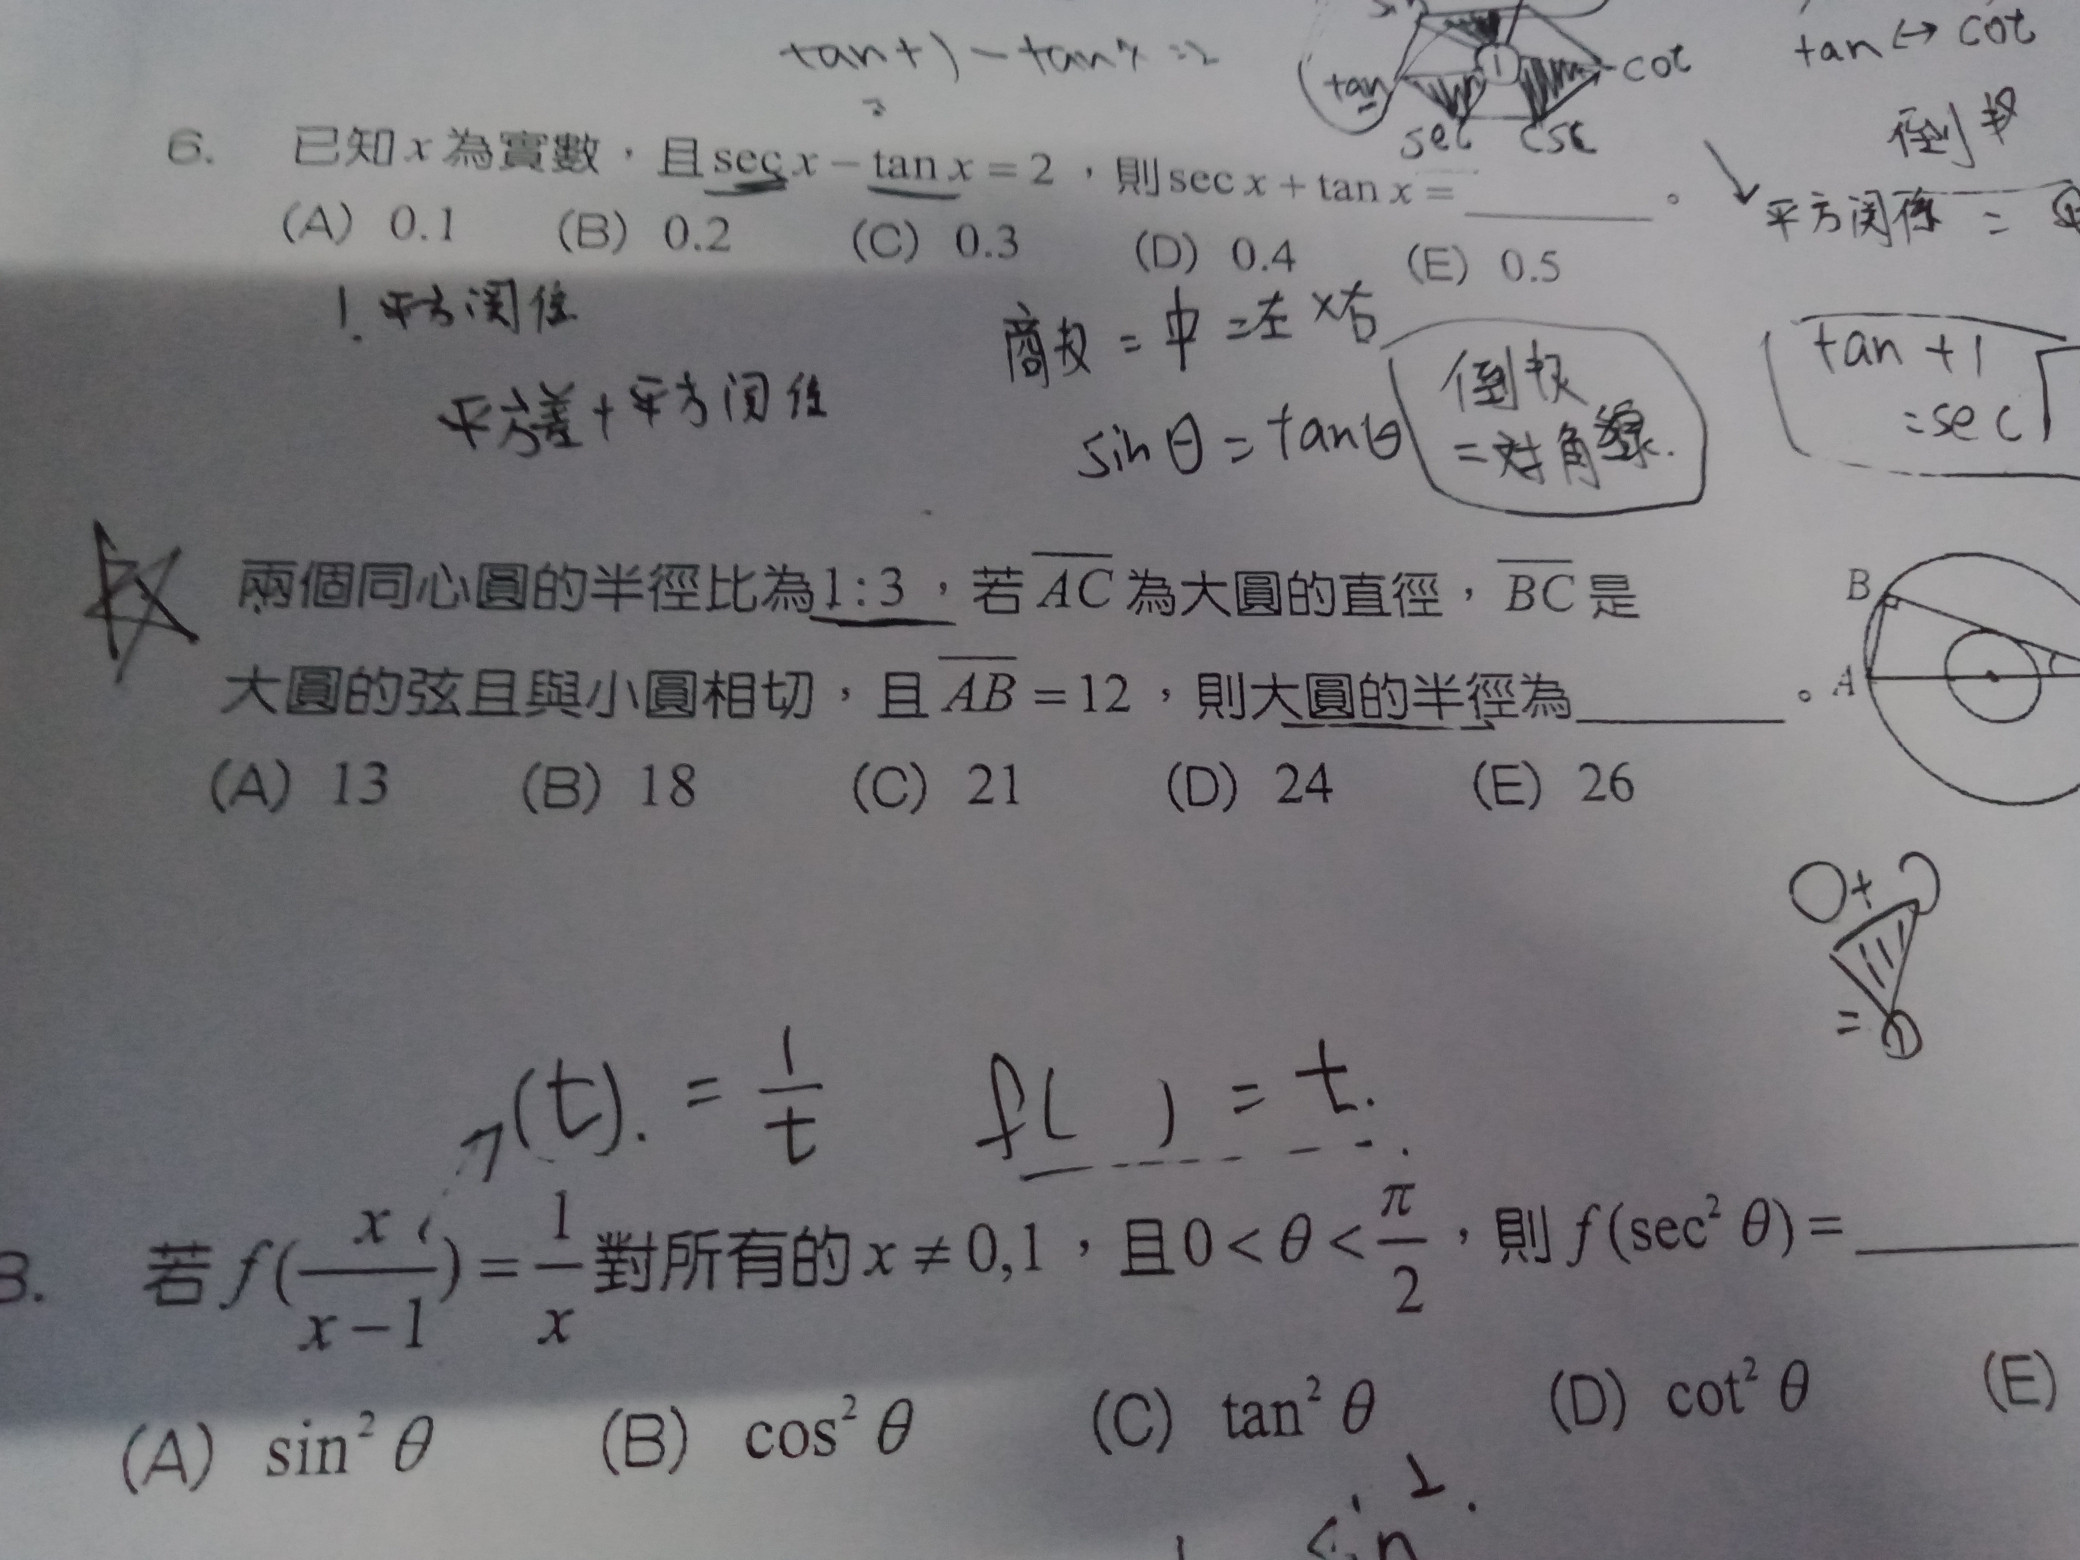 tan+1 - tanx = 2
tan
cot
sec
csc
tan ↔ cot
倒數
6. 已知 x 為實數，且 sec x − tan x = 2，則 sec x + tan x = ________。
平方関係 =
(A) 0.1 (B) 0.2 (C) 0.3 (D) 0.4 (E) 0.5
1. 平方関係
平方差+平方関係
商數 = 中 = 左×右
sinθ = tanθ
倒數
=対角線.
tan +1
=sec
兩個同心圓的半徑比為 1:3，若 AC 為大圓的直徑，BC 是
大圓的弦且與小圓相切，且 AB = 12，則大圓的半徑為________。
B
A
(A) 13 (B) 18 (C) 21 (D) 24 (E) 26
(t). = 1/t f( ) = t.
8. 若 f(x/(x−1)) = 1/x 對所有的 x ≠ 0,1，且 0 < θ < π/2，則 f(sec² θ) = ________
(A) sin² θ (B) cos² θ (C) tan² θ (D) cot² θ (E)